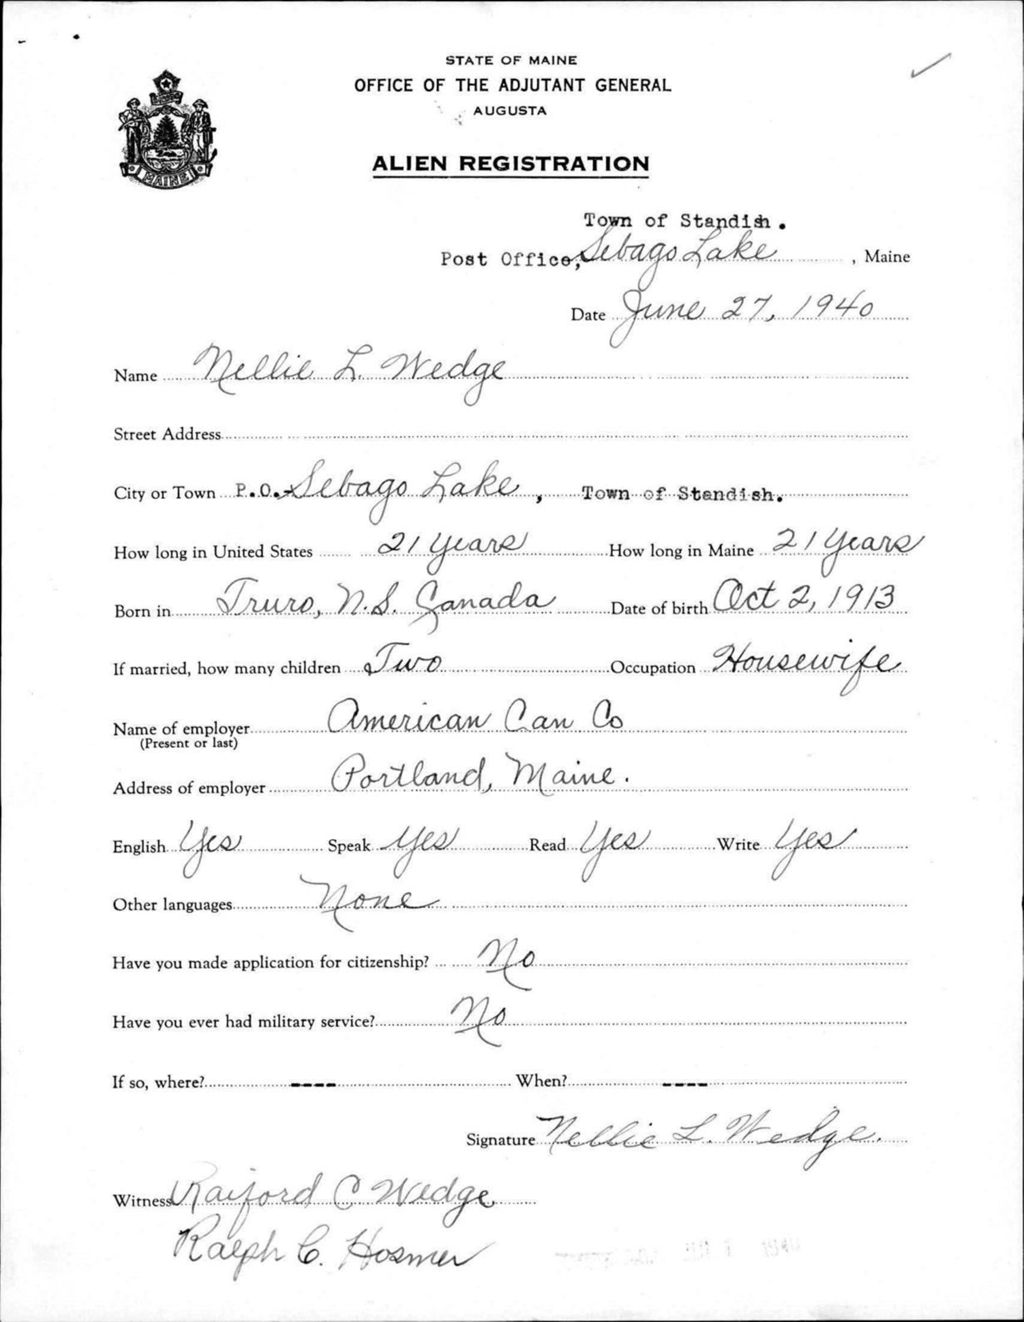 STATE OF MAINE
OFFICE OF THE ADJUTANT GENERAL
AUGUSTA
MAINE
ALIEN REGISTRATION
Town of Standish.
Post Office, Sebago Lake, Maine
Date June 27, 1940
Name Nellie L. Wedge
Street Address
City or Town P.O. Sebago Lake, Town of Standish.
How long in United States 21 years How long in Maine 21 years
Born in Truro, N.S. Canada Date of birth Oct 2, 1913
If married, how many children Two Occupation Housewife
Name of employer American Can Co
(Present or last)
Address of employer Portland, Maine.
English Yes Speak Yes Read Yes Write Yes
Other languages None
Have you made application for citizenship? No
Have you ever had military service? No
If so, where? ---- When? ----
Signature Nellie L. Wedge.
Witness Raiford C Wedge
Ralph C. Hosmer